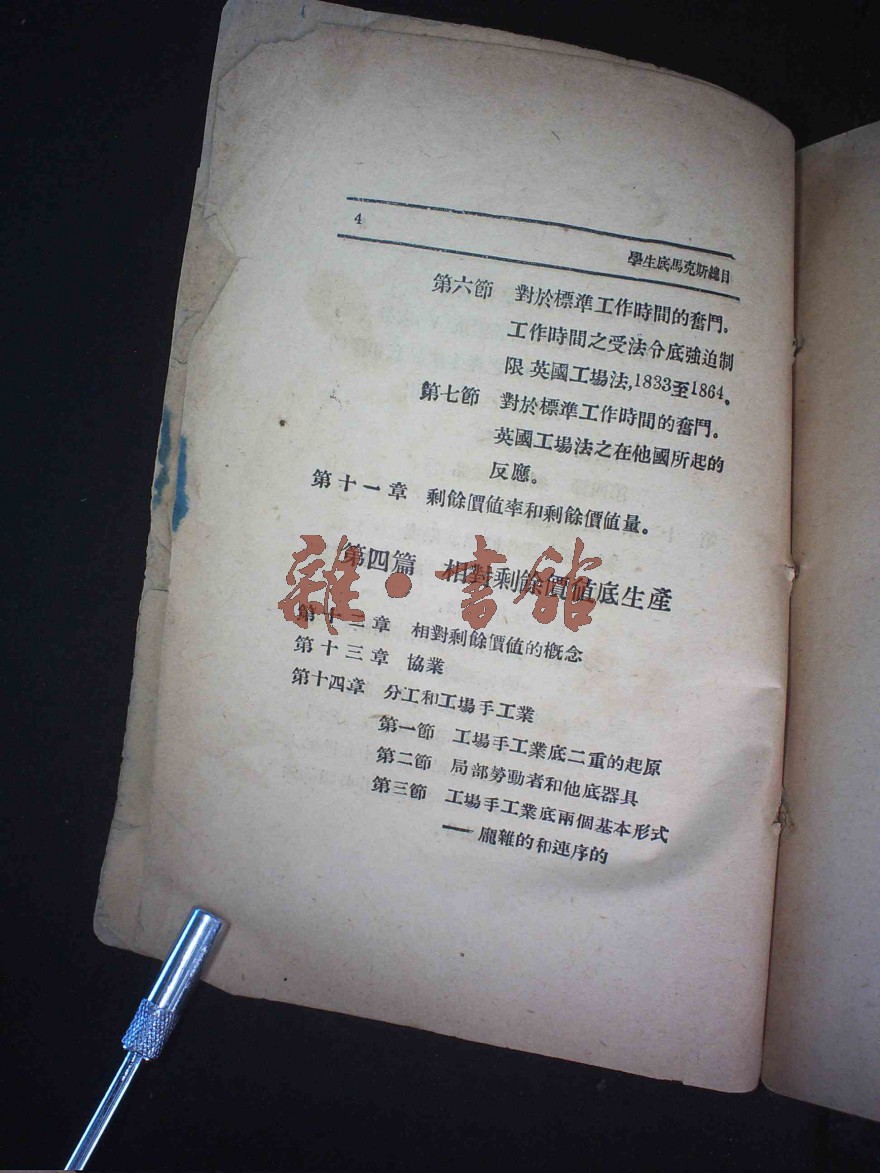 4
學生底馬克斯總目
第六節 對於標準工作時間的奮鬥.
工作時間之受法令底強迫制
限 英國工場法,1833至1864。
第七節 對於標準工作時間的奮鬥。
英國工場法之在他國所起的
反應。
第十一章 剩餘價值率和剩餘價值量。
第四篇 相對剩餘價值底生產
雜·書館
第十二章 相對剩餘價值的概念
第十三章 協業
第十四章 分工和工場手工業
第一節 工場手工業底二重的起原
第二節 局部勞動者和他底器具
第三節 工場手工業底兩個基本形式
——龐雜的和連序的